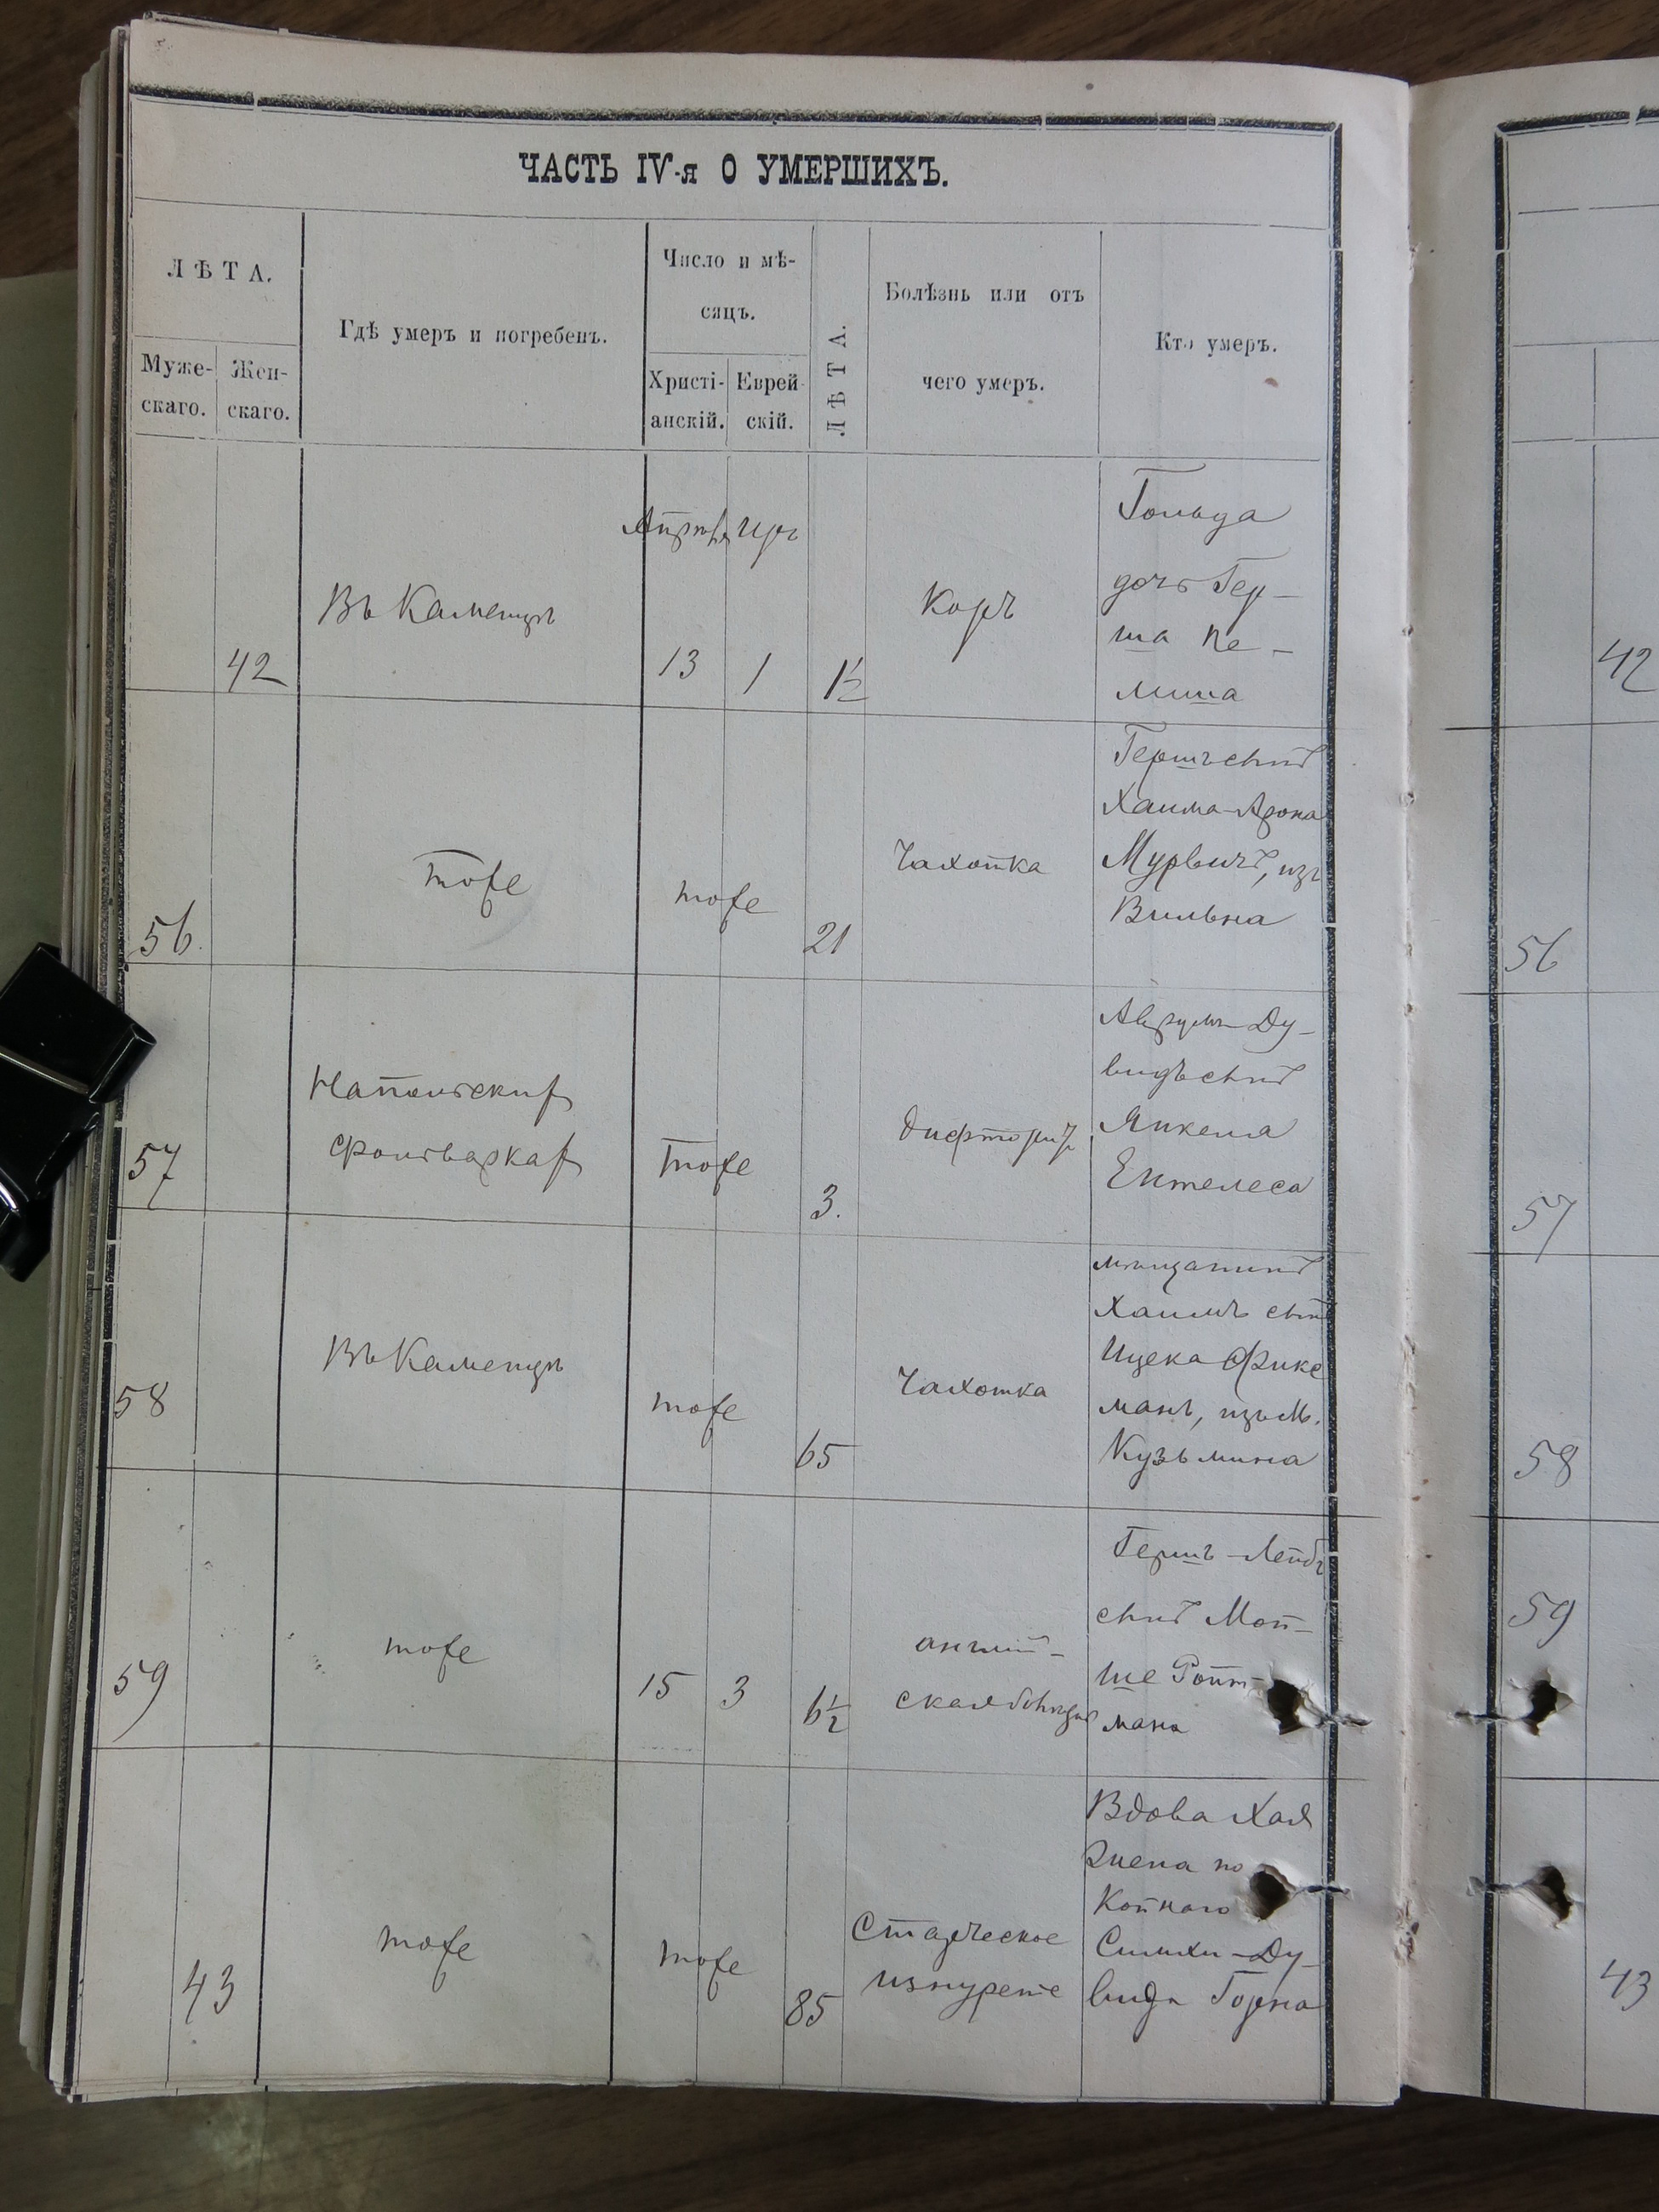 ЧАСТЬ IV-я О УМЕРШИХЪ.
ЛѢТА.
Муже-
скаго.
Жен-
скаго.
Гдѣ умеръ и погребенъ.
Число и мѣ-
сяцъ.
Христі-
анскій.
Еврей
скій.
ЛѢТА.
Болѣзнь или отъ
чего умеръ.
Кто умеръ.
42
Въ Каменцѣ
Апрѣля
Иръ
13
1
1½
Корь
Гольда
дочь Гер-
ша
42
56.
тоже
тоже
21
Чахотка
Гершъ сынъ
Хаима-Арона
Мурвичъ, изъ
Вильна
56
57
Напольских
фольварках
тоже
3.
дифторит
Аврумъ-Ду-
видъ сынъ
Янкеля
Ентелеса
57
58
Въ Каменцѣ
тоже
65
Чахотка
мѣщанинъ
Хаимъ сынъ
Ицека Фикс
манъ, изъ м.
Кузьмина
58
59
тоже
15
3
6½
англій-
ская болѣзнь
Гершъ-Лейбъ
сынъ Мой-
ше Ройт-
мана
59
43
тоже
тоже
85
Старческое
изнуреніе
Вдова Хая
жена по
койнаго
Симхи-Ду-
вида Горна
43